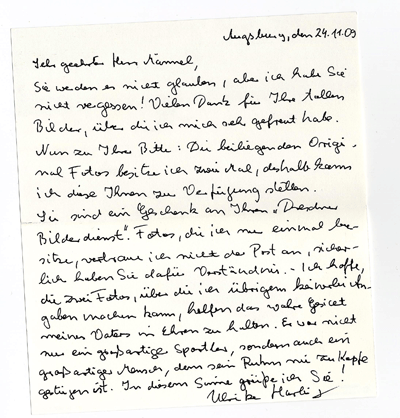 Augsburg, den 24.11.09
Sehr geehrter Herr Männel,
Sie werden es nicht glauben, aber ich habe Sie
nicht vergessen! Vielen Dank für Ihre tollen
Bilder, über die ich mich sehr gefreut habe.
Nun zu Ihrer Bitte: Die beiliegenden Origi-
nal Fotos besitze ich zwei Mal, deshalb kann
ich diese Ihnen zur Verfügung stellen.
Sie sind ein Geschenk an Ihren "Dresdner
Bilderdienst". Fotos, die ich nur einmal be-
sitze, vertraue ich nicht der Post an, sicher-
lich haben Sie dafür Verständnis. - Ich hoffe,
die zwei Fotos, über die ich übrigens keinerlei An-
gaben machen kann, helfen das wahre Gesicht
meines Vaters in Ehren zu halten. Er war nicht
nur ein großartiger Sportler, sondern auch ein
großartiger Mensch, dem sein Ruhm nie zu Kopfe
gestiegen ist. In diesem Sinne grüße ich Sie!
Ulrike